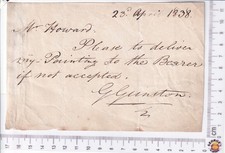 23d April 1838.
Mr Howard.
Please to deliver
my Painting to the Bearer
if not accepted.
G Gunston.